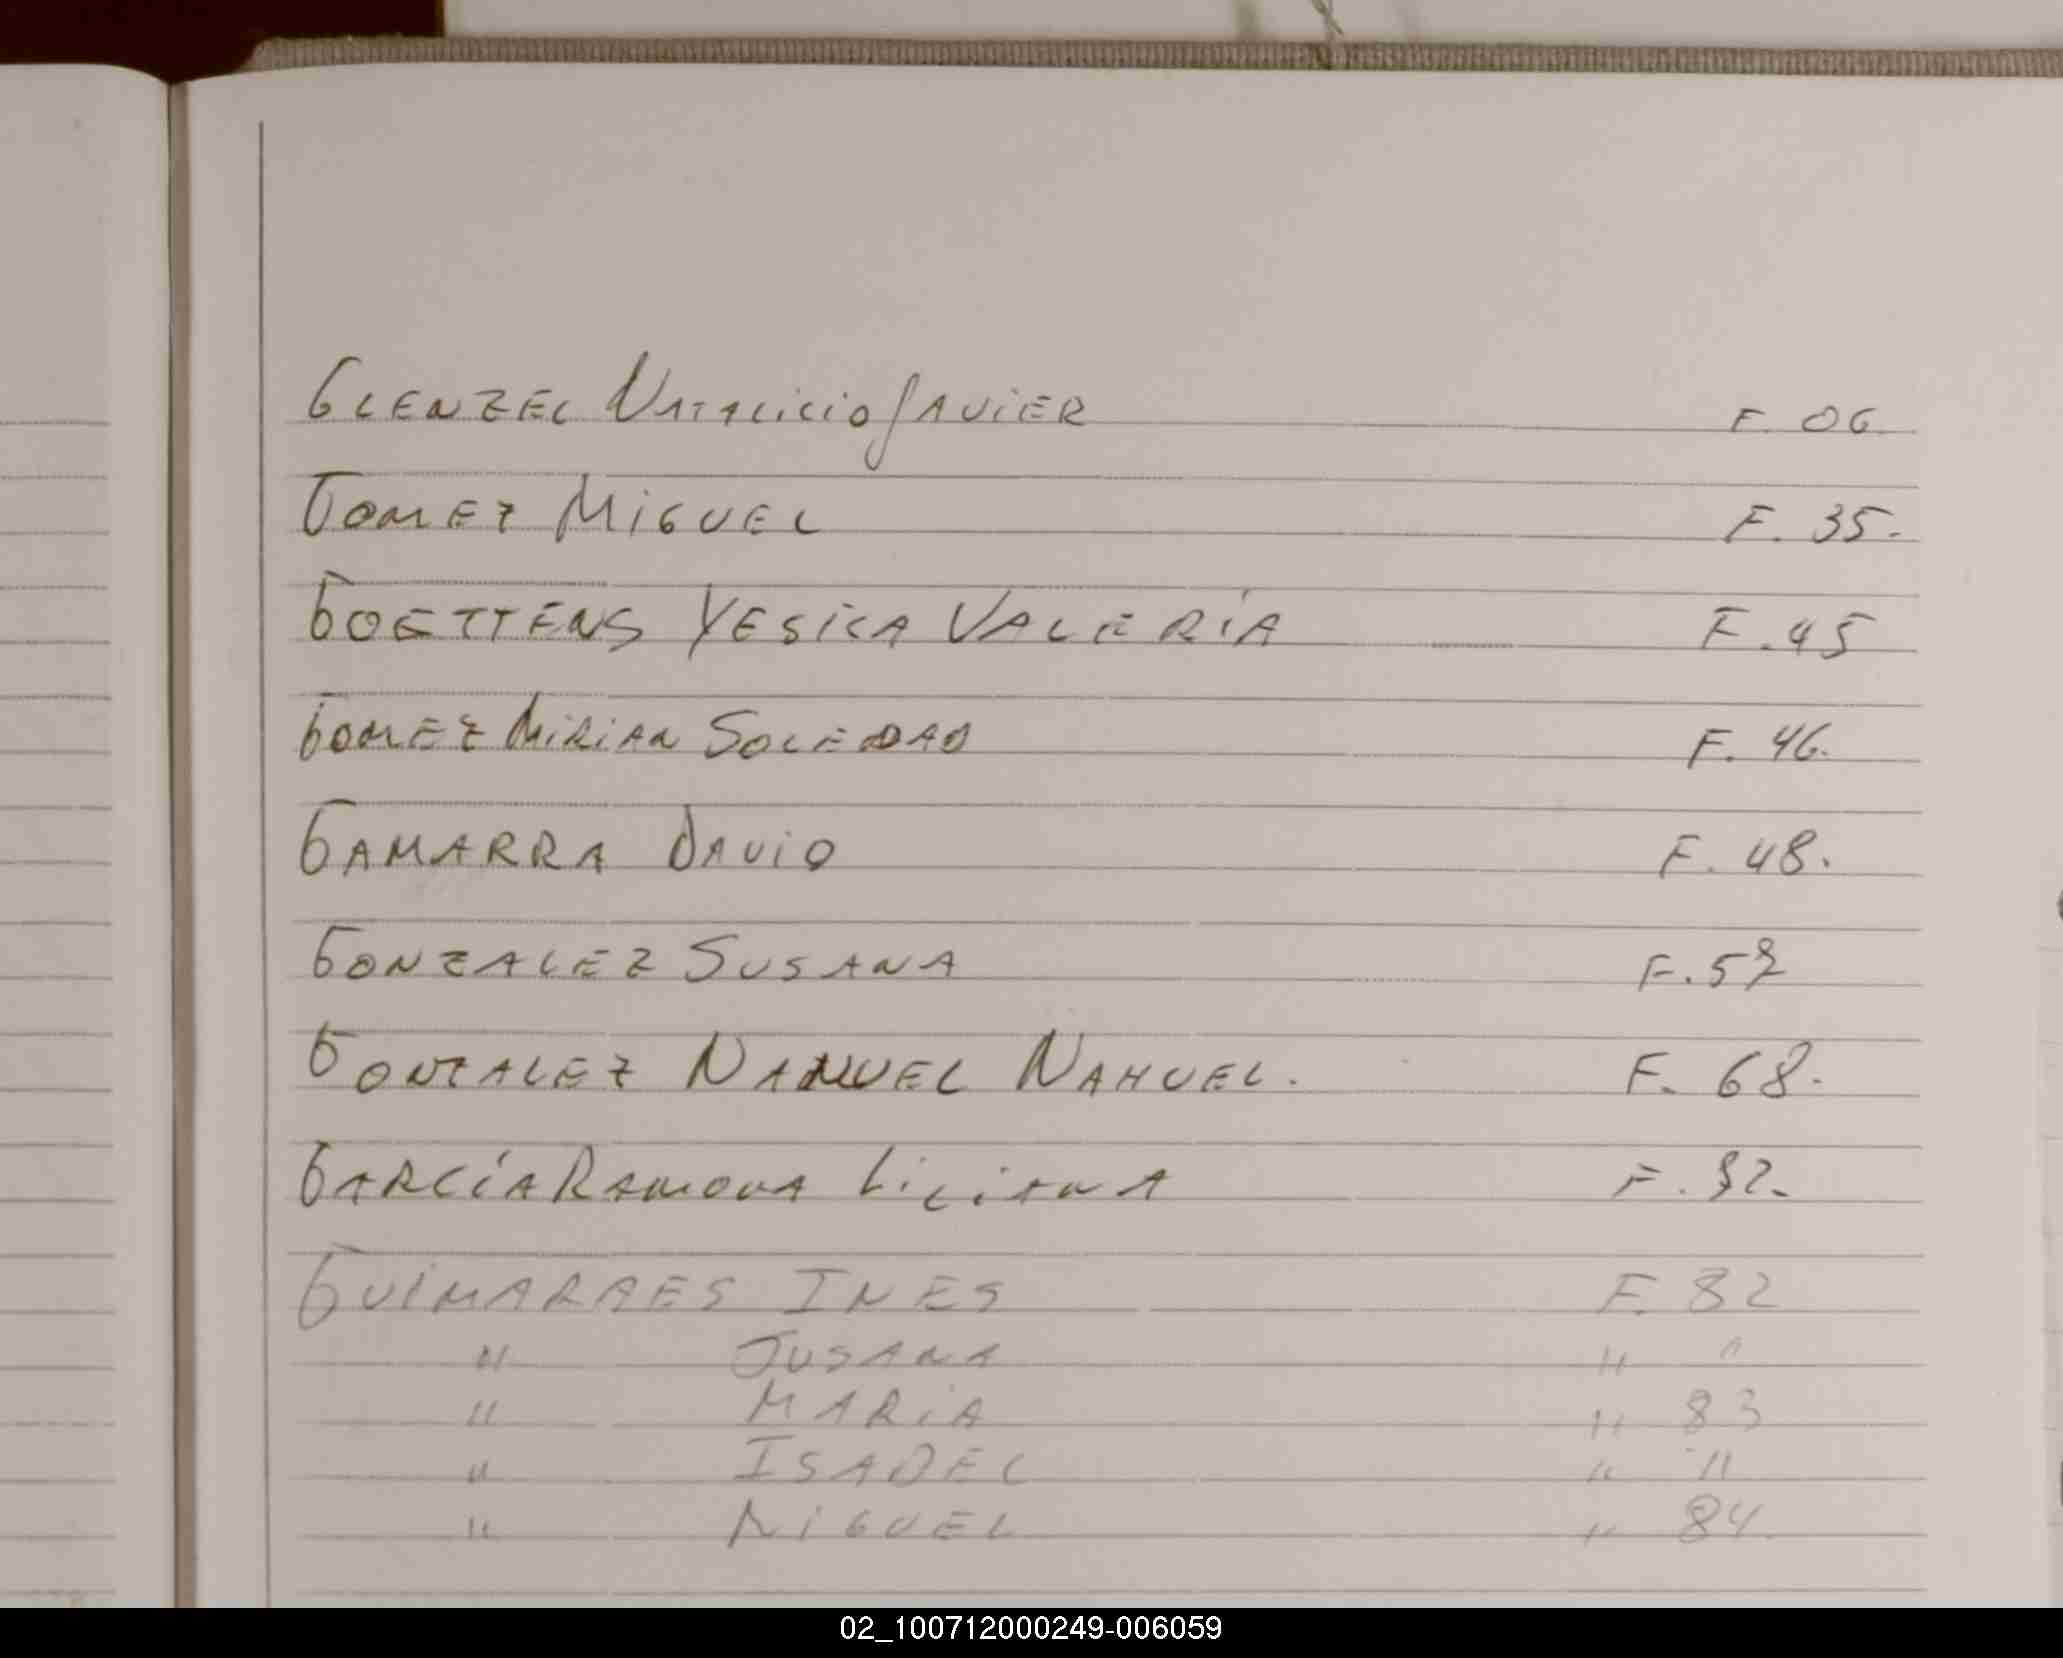 GLENZEL NATALICIO JAVIER F. 06.
GOMEZ MIGUEL F. 35.
GOETTENS YESICA VALERIA F. 45
GOMEZ MIRIAN SOLEDAD F. 46.
GAMARRA DAVID F. 48.
GONZALEZ SUSANA F.
GONZALEZ NAHUEL NAHUEL. F. 68.
GARCÍA RAMONA LILIANA F.
GUIMARAES INES F. 82
" SUSANA " "
" MARIA " 83
" ISABEL " "
" MIGUEL " 84.
02_100712000249-006059